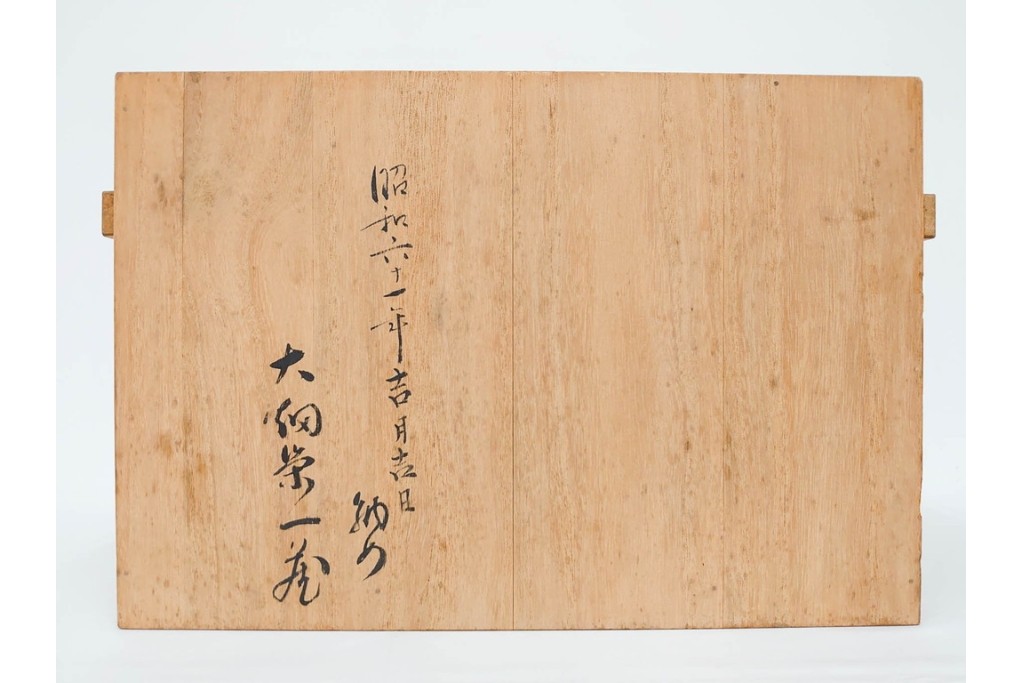 昭和六十一年吉月吉日
納め
大畑栄一蔵